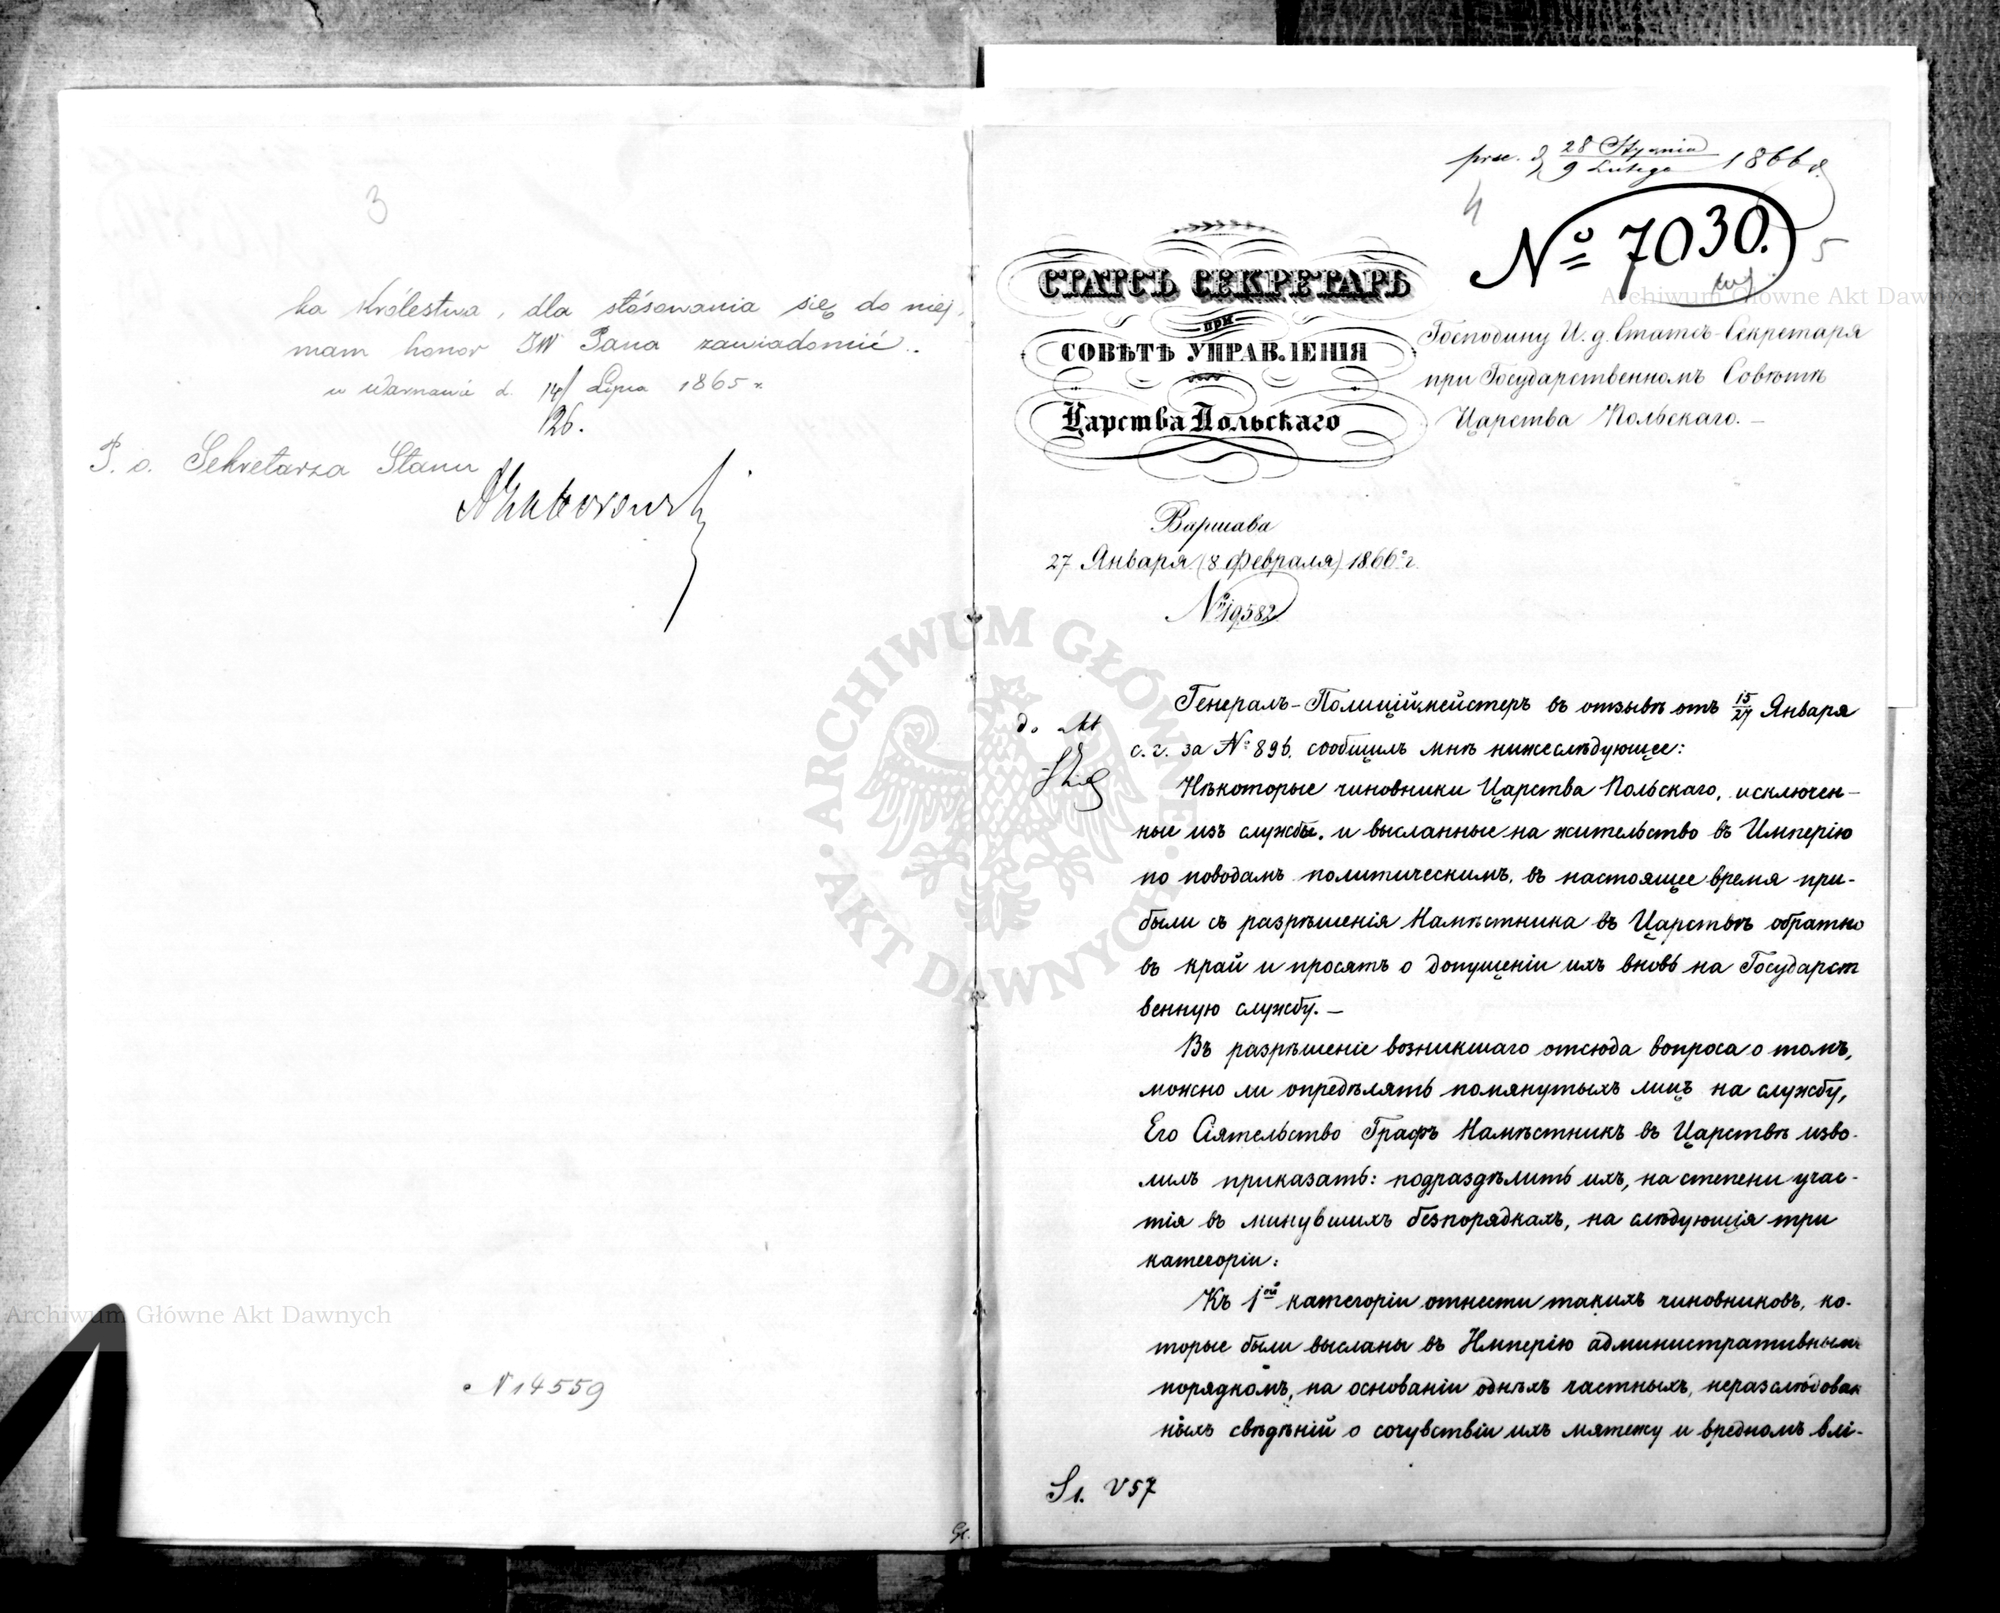 3
ka Królestwa, dla stósowania się do niej,
mam honor JW Pana zawiadomić.
w Warszawie d. 14/26. Lipca 1865 r.
P. o. Sekretarza Stanu
N 14559
prez. d. 28 Stycznia / 9 Lutego 1866 r.
4
№ 7030.
5
СТАТСЪ СЕКРЕТАРЬ
при
СОВѢТѢ УПРАВЛЕНІЯ
Царства Польскаго
Господину И. д. Статсъ-Секретаря
при Государственномъ Совѣтѣ
Царства Польскаго. —
Варшава
27 Января (8 Февраля) 1866 г.
№ 19582
do Akt
Генералъ-Полиціймейстеръ въ отзывѣ отъ 15/27 Января
с. г. за № 896. сообщилъ мнѣ нижеслѣдующее:
Нѣкоторые чиновники Царства Польскаго, исключен-
ные изъ службы, и высланные на жительство въ Имперію
по поводамъ политическимъ, въ настоящее время при-
были съ разрѣшенія Намѣстника въ Царствѣ обратно
въ край и просятъ о допущеніи ихъ вновь на Государст
венную службу. —
Въ разрѣшеніе возникшаго отсюда вопроса о томъ,
можно ли опредѣлять помянутыхъ лицъ на службу,
Его Сіятельство Графъ Намѣстникъ въ Царствѣ изво-
лилъ приказать: подраздѣлить ихъ, на степени учас-
тія въ минувшихъ безпорядкахъ, на слѣдующія три
категоріи:
Къ 1ой категоріи отнести такихъ чиновниковъ, ко-
торые были высланы въ Имперію административнымъ
порядкомъ, на основаніи однѣхъ частныхъ, неразслѣдован
ныхъ свѣдѣній о сочувствіи ихъ мятежу и вредномъ влі-
S1. V57
Archiwum Główne Akt Dawnych
Archiwum Główne Akt Dawnych
ARCHIWUM GŁÓWNE AKT DAWNYCH